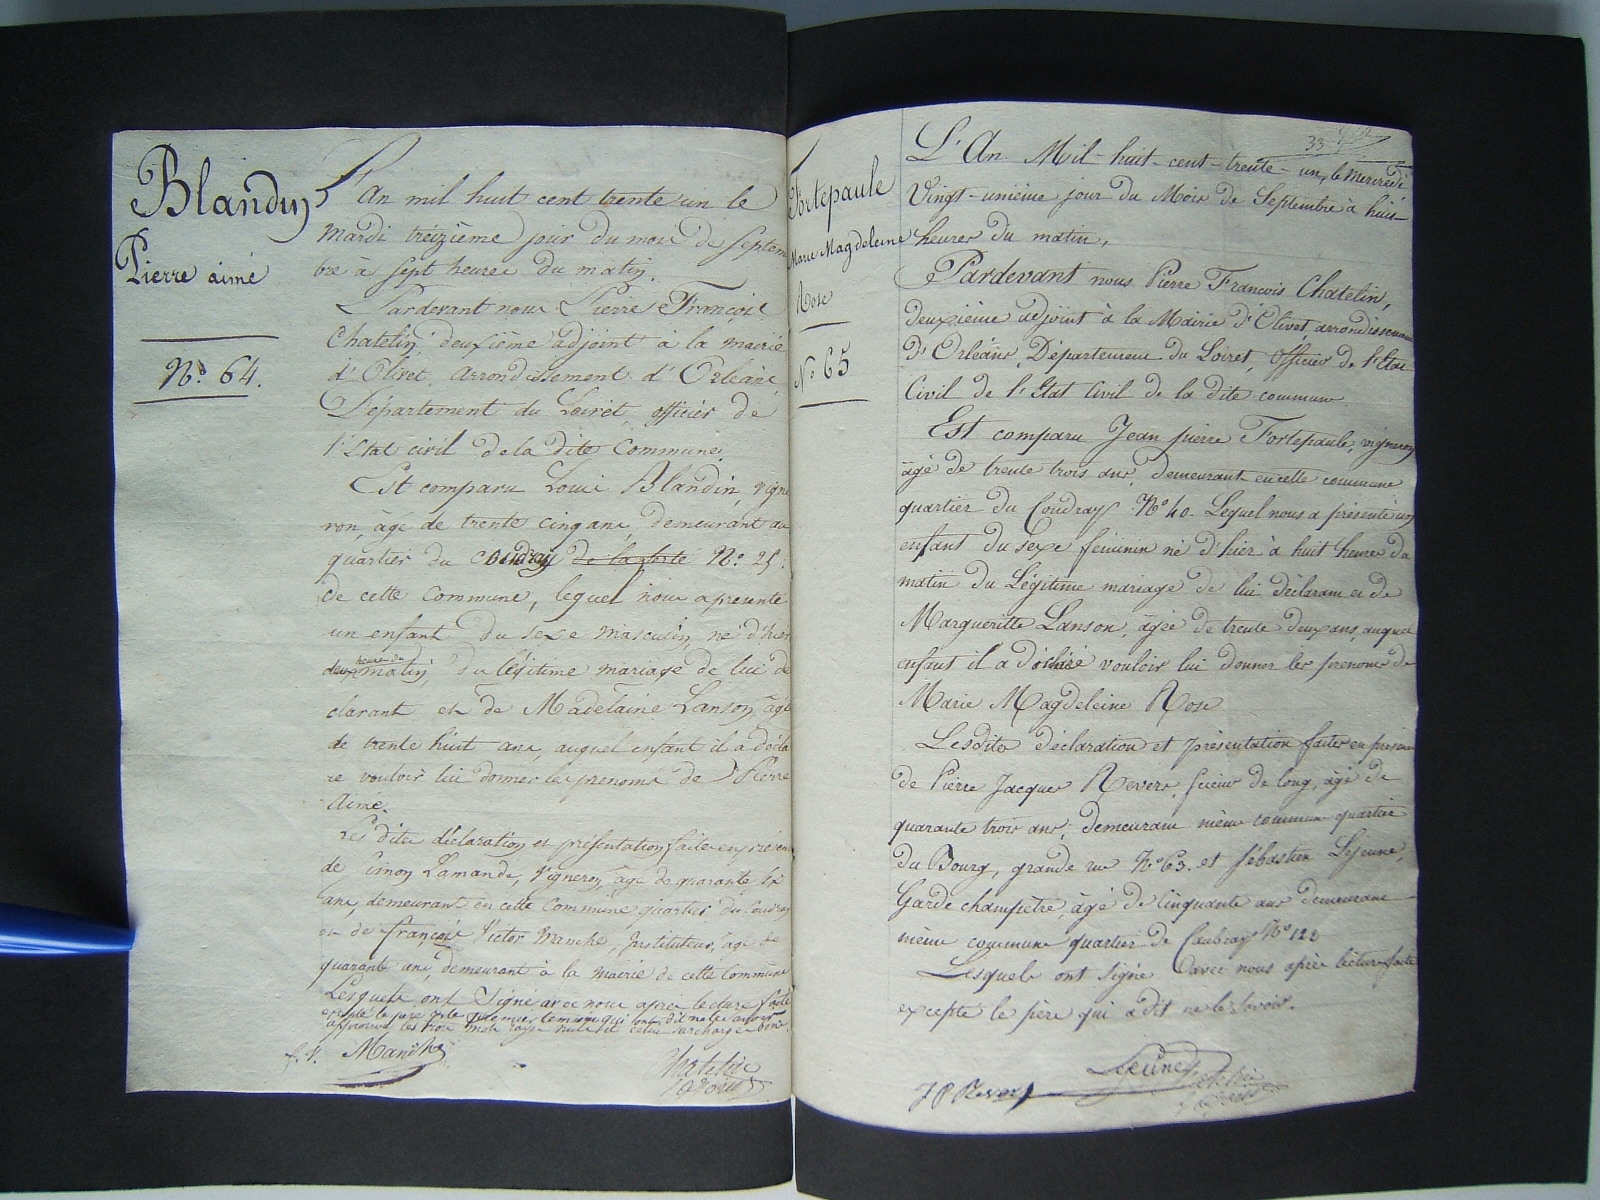 Blandin
Pierre aimé
No 64.
L'An mil huit cent trente un le
Mardi treizième jour du mois de Septem
bre à Sept heures du matin.
Pardevant nous Pierre François
Chatelin, deuxième adjoint à la mairie
d'Olivet, arrondissement d'Orléans
Département du Loiret, officier de
l'Etat civil de la dite Commune.
Est comparu Louis Blandin, vigne
ron, âgé de trente cinq ans, demeurant au
quartier du Coudray de la porte No. 25.
de cette Commune, lequel nous a présenté
un enfant du sexe masculin, né d'hier
heures du
deux matin, du légitime mariage de lui dé
clarant et de Madelaine Lanson, âgé
de trente huit ans, auquel enfant il a décla
ré vouloir lui donner les prenoms de Pierre
Aimé.
Les dites déclaration et présentation faites en présen
de Simon Lamande, Vigneron, âgé de quarante six
ans, demeurant en cette Commune quartier du Coudray
et de françois Victor Manche, Instituteur, âgé de
quarante ans, demeurant à la mairie de cette Commune
Lesquels ont Signé avec nous après lecture faite
excepté le père et le premier témoin qui ont dit ne le savoir
approuvé les trois mots rayés nuls et celui surchargé bon.
f. v. Manche
Chatelin
adjoint
33
Fortepaule
Marie Magdeleine
Rose
No 65
L'An Mil-huit-cent-trente-un, le Mercredi
Vingt-unième jour du Mois de Septembre à huit
heures du matin,
Pardevant nous Pierre François Chatelin,
deuxième adjoint à la Mairie d'Olivet, arrondissement
d'Orléans, Département du Loiret, Officier de l'Etat
Civil de l'Etat Civil de la dite commune
Est comparu Jean pierre Fortepaule, vigneron
âgé de trente trois ans, demeurant en cette commune
quartier du Coudray No 40. Lequel nous a présenté un
enfant du sexe féminin né d'hier à huit heures du
matin du Légitime mariage de lui déclarant et de
Margueritte Lanson, âgée de trente deux ans, auquel
enfant il a déclaré vouloir lui donner les prenoms de
Marie Magdeleine Rose
Lesdites déclaration et présentation faites en présence
de Pierre Jacques Revers, scieur de long, âgé de
quarante trois ans, demeurant même commune quartier
du Bourg, grande rue No 63. et Sébastien Lejeune,
Garde champêtre, âgé de cinquante ans demeurant
même commune quartier de Caubray No 122
Lesquels ont signé avec nous après lecture faite
excepté le père qui a dit ne le savoir.
Lejeune
Chatelin
J P Revers